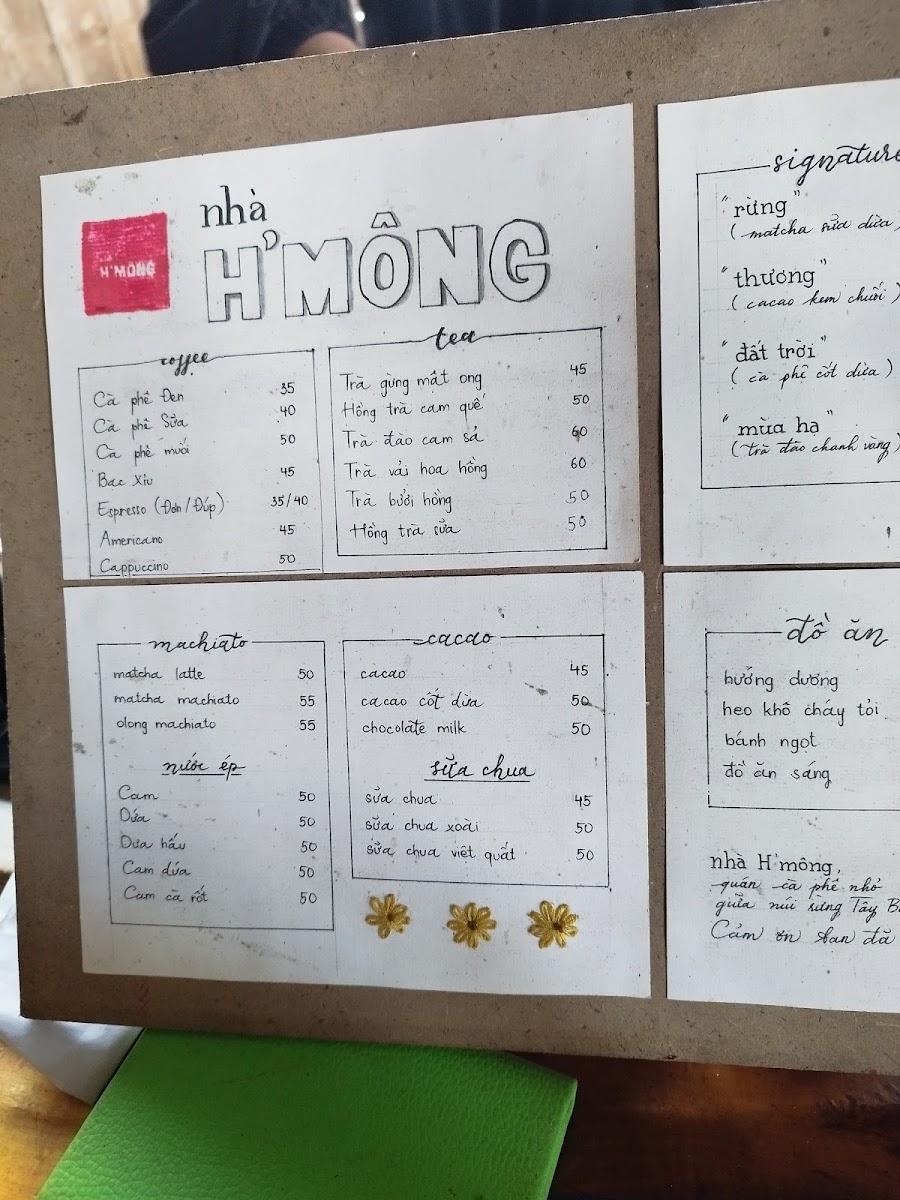 nhà
H'MÔNG
H'MÔNG
coffee
Cà phê Đen 35
Cà phê Sữa 40
Cà phê muối 50
Bạc Xỉu 45
Espresso (Đơn/Đúp) 35/40
Americano 45
Cappuccino 50
tea
Trà gừng mật ong 45
Hồng trà cam quế 50
Trà đào cam sả 60
Trà vải hoa hồng 60
Trà bưởi hồng 50
Hồng trà sữa 50
signature
"rừng"
(matcha sữa dừa)
"thương"
(cacao kem chuối)
"đất trời"
(cà phê cốt dừa)
"mùa hạ"
(trà đào chanh vàng)
machiato
matcha latte 50
matcha machiato 55
olong machiato 55
nước ép
Cam 50
Dứa 50
Dưa hấu 50
Cam dứa 50
Cam cà rốt 50
cacao
cacao 45
cacao cốt dừa 50
chocolate milk 50
sữa chua
sữa chua 45
sữa chua xoài 50
sữa chua việt quất 50
đồ ăn
hướng dương
heo khô cháy tỏi
bánh ngọt
đồ ăn sáng
nhà H'mông,
quán cà phê nhỏ
giữa núi rừng Tây B
Cảm ơn bạn đã